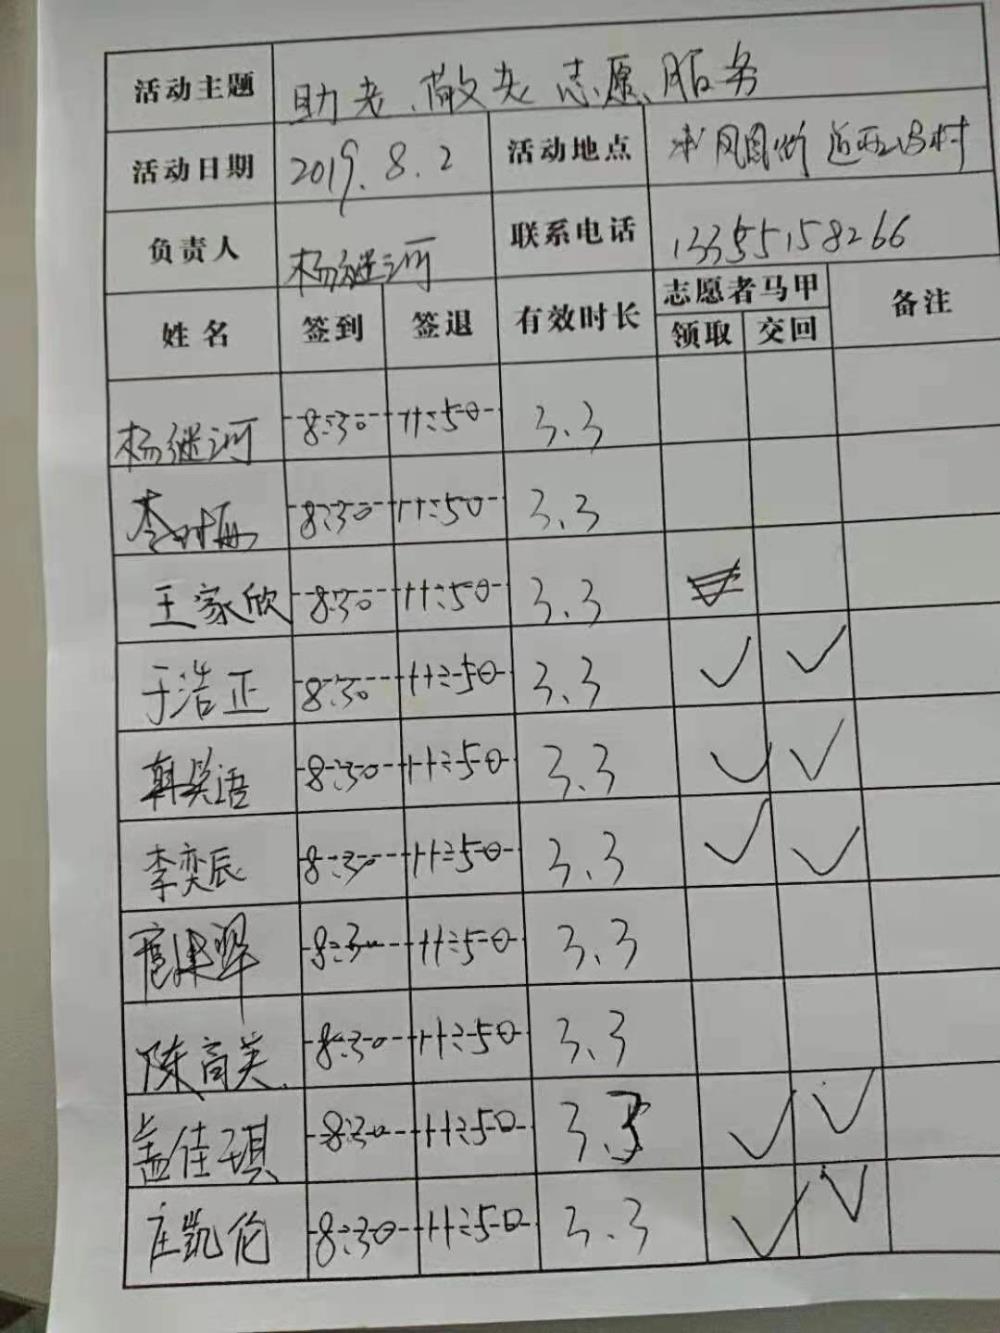 活动主题 助老、敬老志愿服务
活动日期 2019.8.2 活动地点 凤凰街 近西冯村
负责人 杨继河 联系电话 13355158266
姓名 签到 签退 有效时长 志愿者马甲 备注
领取 交回
杨继河 8:30 11:50 3.3
李 8:30 11:50 3.3
王家欣 8:30 11:50 3.3
于浩正 8:30 11:50 3.3 ✓ ✓
韩笑语 8:30 11:50 3.3 ✓ ✓
李奕辰 8:30 11:50 3.3 ✓ ✓
8:30 11:50 3.3
陈高美 8:30 11:50 3.3
盖佳琪 8:30 11:50 3.3 ✓ ✓
庄凯伦 8:30 11:50 3.3 ✓ ✓